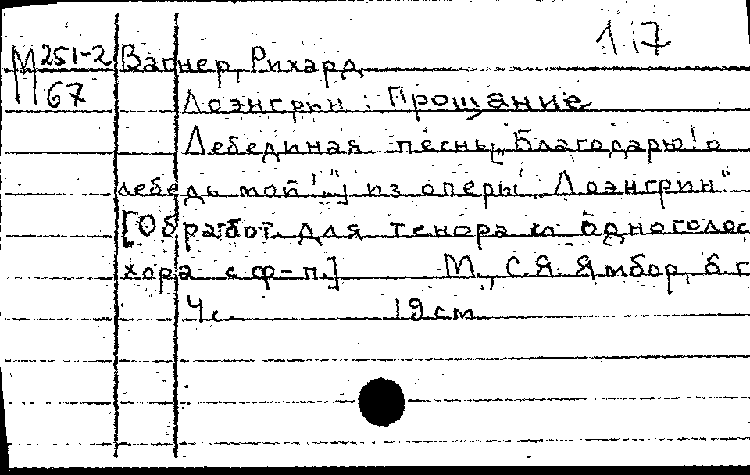 117
М 251-2 Вагнер, Рихард
67 Лоэнгрин: Прощание
Лебединая песнь „Благодарю! о
лебедь мой!.."; из оперы „Лоэнгрин"
[Обработ. для тенора и одноголос
хора с ф-п.] М., С.Я. Ямбор, б. г
4 с. 19 cm